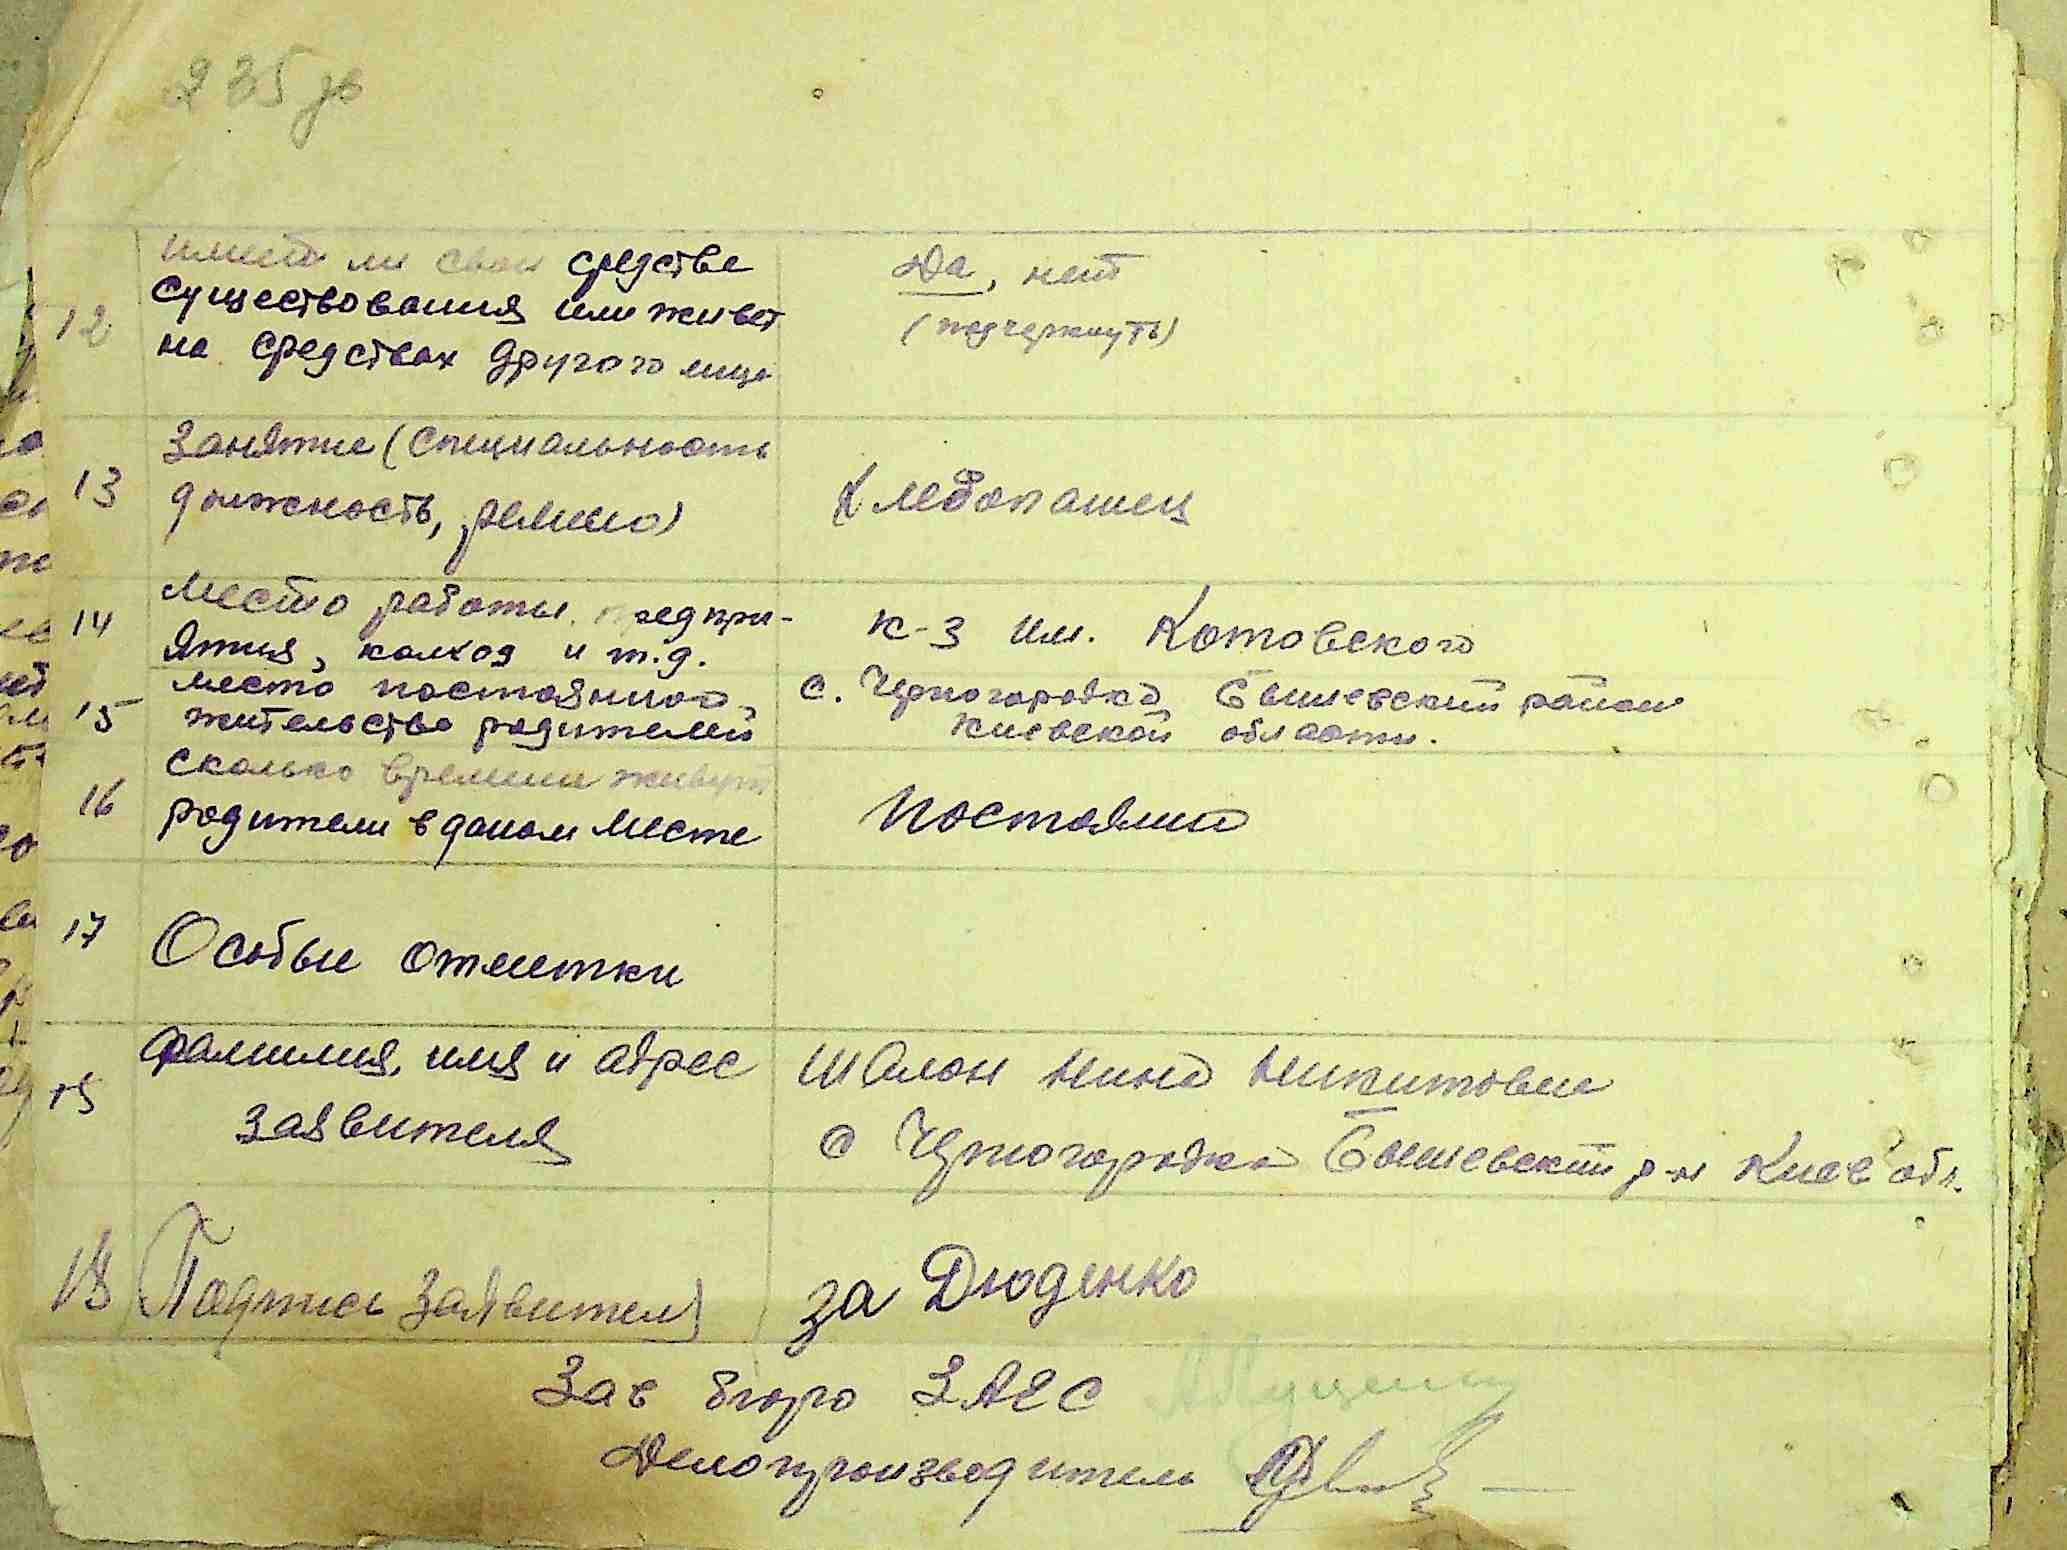 235 зв
12 имеет ли свои средстве
существования или живет
на средствах другого лица
Да, нет
(подчеркнуть)
13 Занятие (специальность
должность, ремесло)
Хлебопашец
14 Место работы, предпри-
ятия, колхоз и т.д.
к-з им. Котовского
15 место постоянного
жительство родителей
с. Черногородка Бышевский район
Киевской области.
16 сколько времени живут
родители в даном месте
постоянно
17 Особые отметки
18 Фамилия, имя и адрес
заявителя
Шалон Нина Никитовна
с Черногородка Бышевский р-н Киев обл.
18 Подпись заявителя
за Дюденко
Зав бюро ЗАГС
Делопроизводитель